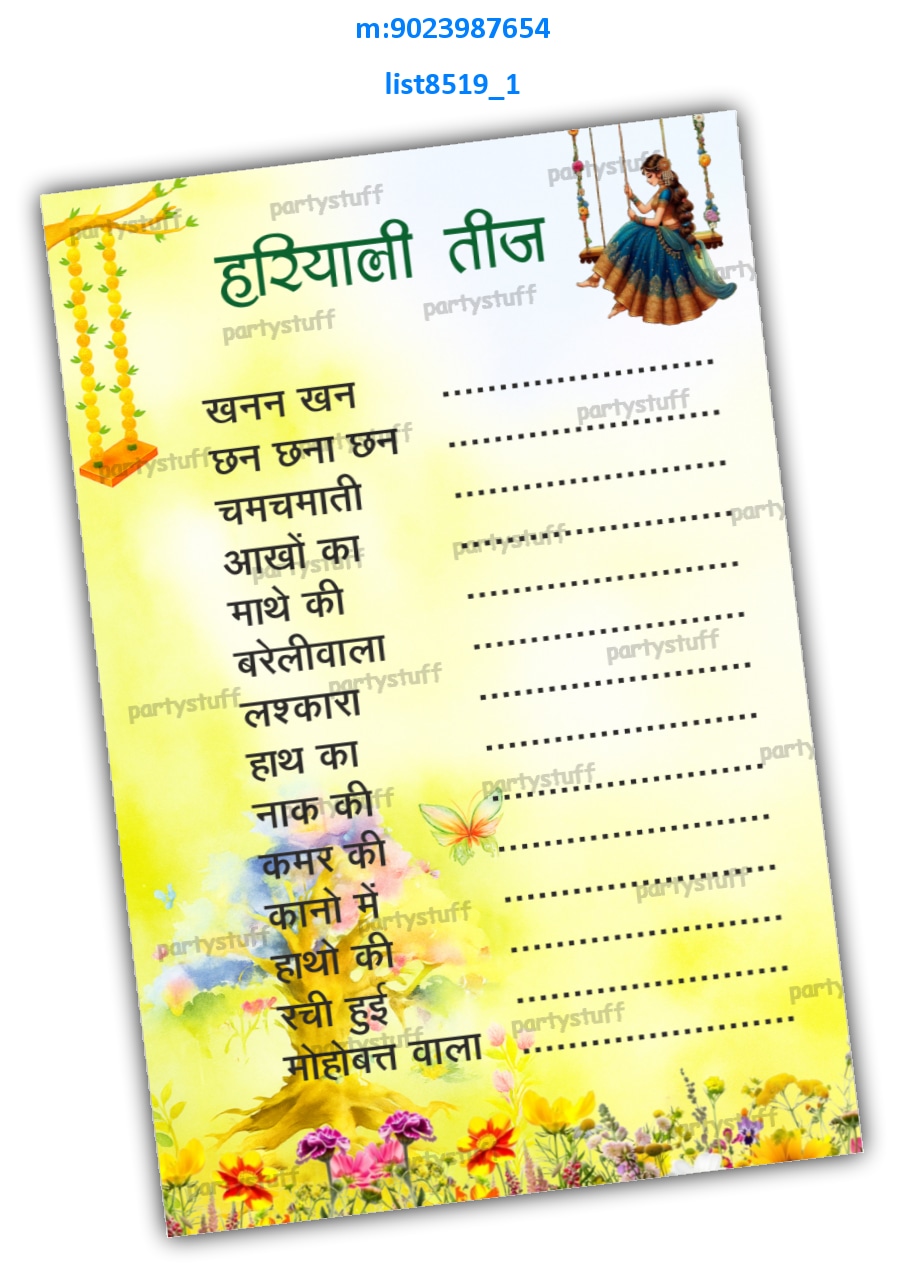 m:9023987654
list8519_1
हरियाली तीज
खनन खन ........................
छन छना छन ........................
चमचमाती ........................
आखों का ........................
माथे की ........................
बरेलीवाला ........................
लश्कारा ........................
हाथ का ........................
नाक की ........................
कमर की ........................
कानो में ........................
हाथो की ........................
रची हुई ........................
मोहोबत्त वाला ........................
partystuff